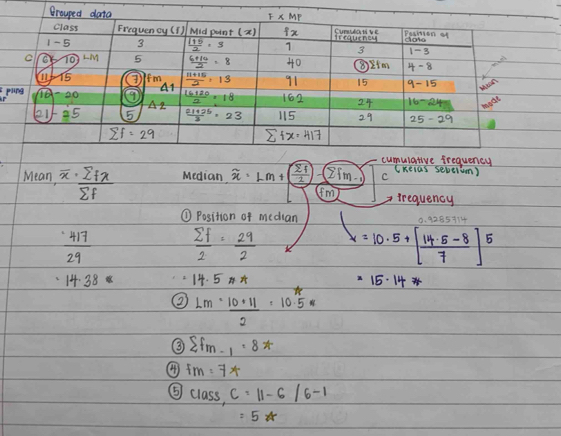 Grouped data
F × MP
Class Frequency (f) Midpoint (x) fx Cumulative frequency Position of data
1 - 5 3 1+5/2 = 3 9 3 1 - 3
C 6 - 10 LM 5 6+10/2 = 8 40 8 Σfm 4 - 8
11 - 15 7 fm Δ1 11+15/2 = 13 91 15 9 - 15 mean
16 - 20 9 Δ2 16+20/2 = 18 162 24 16 - 24 mode
21 - 25 5 21+25/2 = 23 115 29 25 - 29
Σf = 29 Σfx = 417
Mean, x̄ = Σfx/Σf
= 417/29
= 14.38
Median, x̃ = Lm + [Σf/2 - Σfm-1 / fm] C
cumulative frequency
(kelas sebelum)
frequency
① Position of median
Σf/2 = 29/2
= 14.5
② Lm = 10+11/2 = 10.5
③ Σfm-1 = 8
④ fm = 7
⑤ Class, C = 11-6 / 6-1
= 5
0.9285714
x = 10.5 + [14.5 - 8 / 7] 5
= 15.14